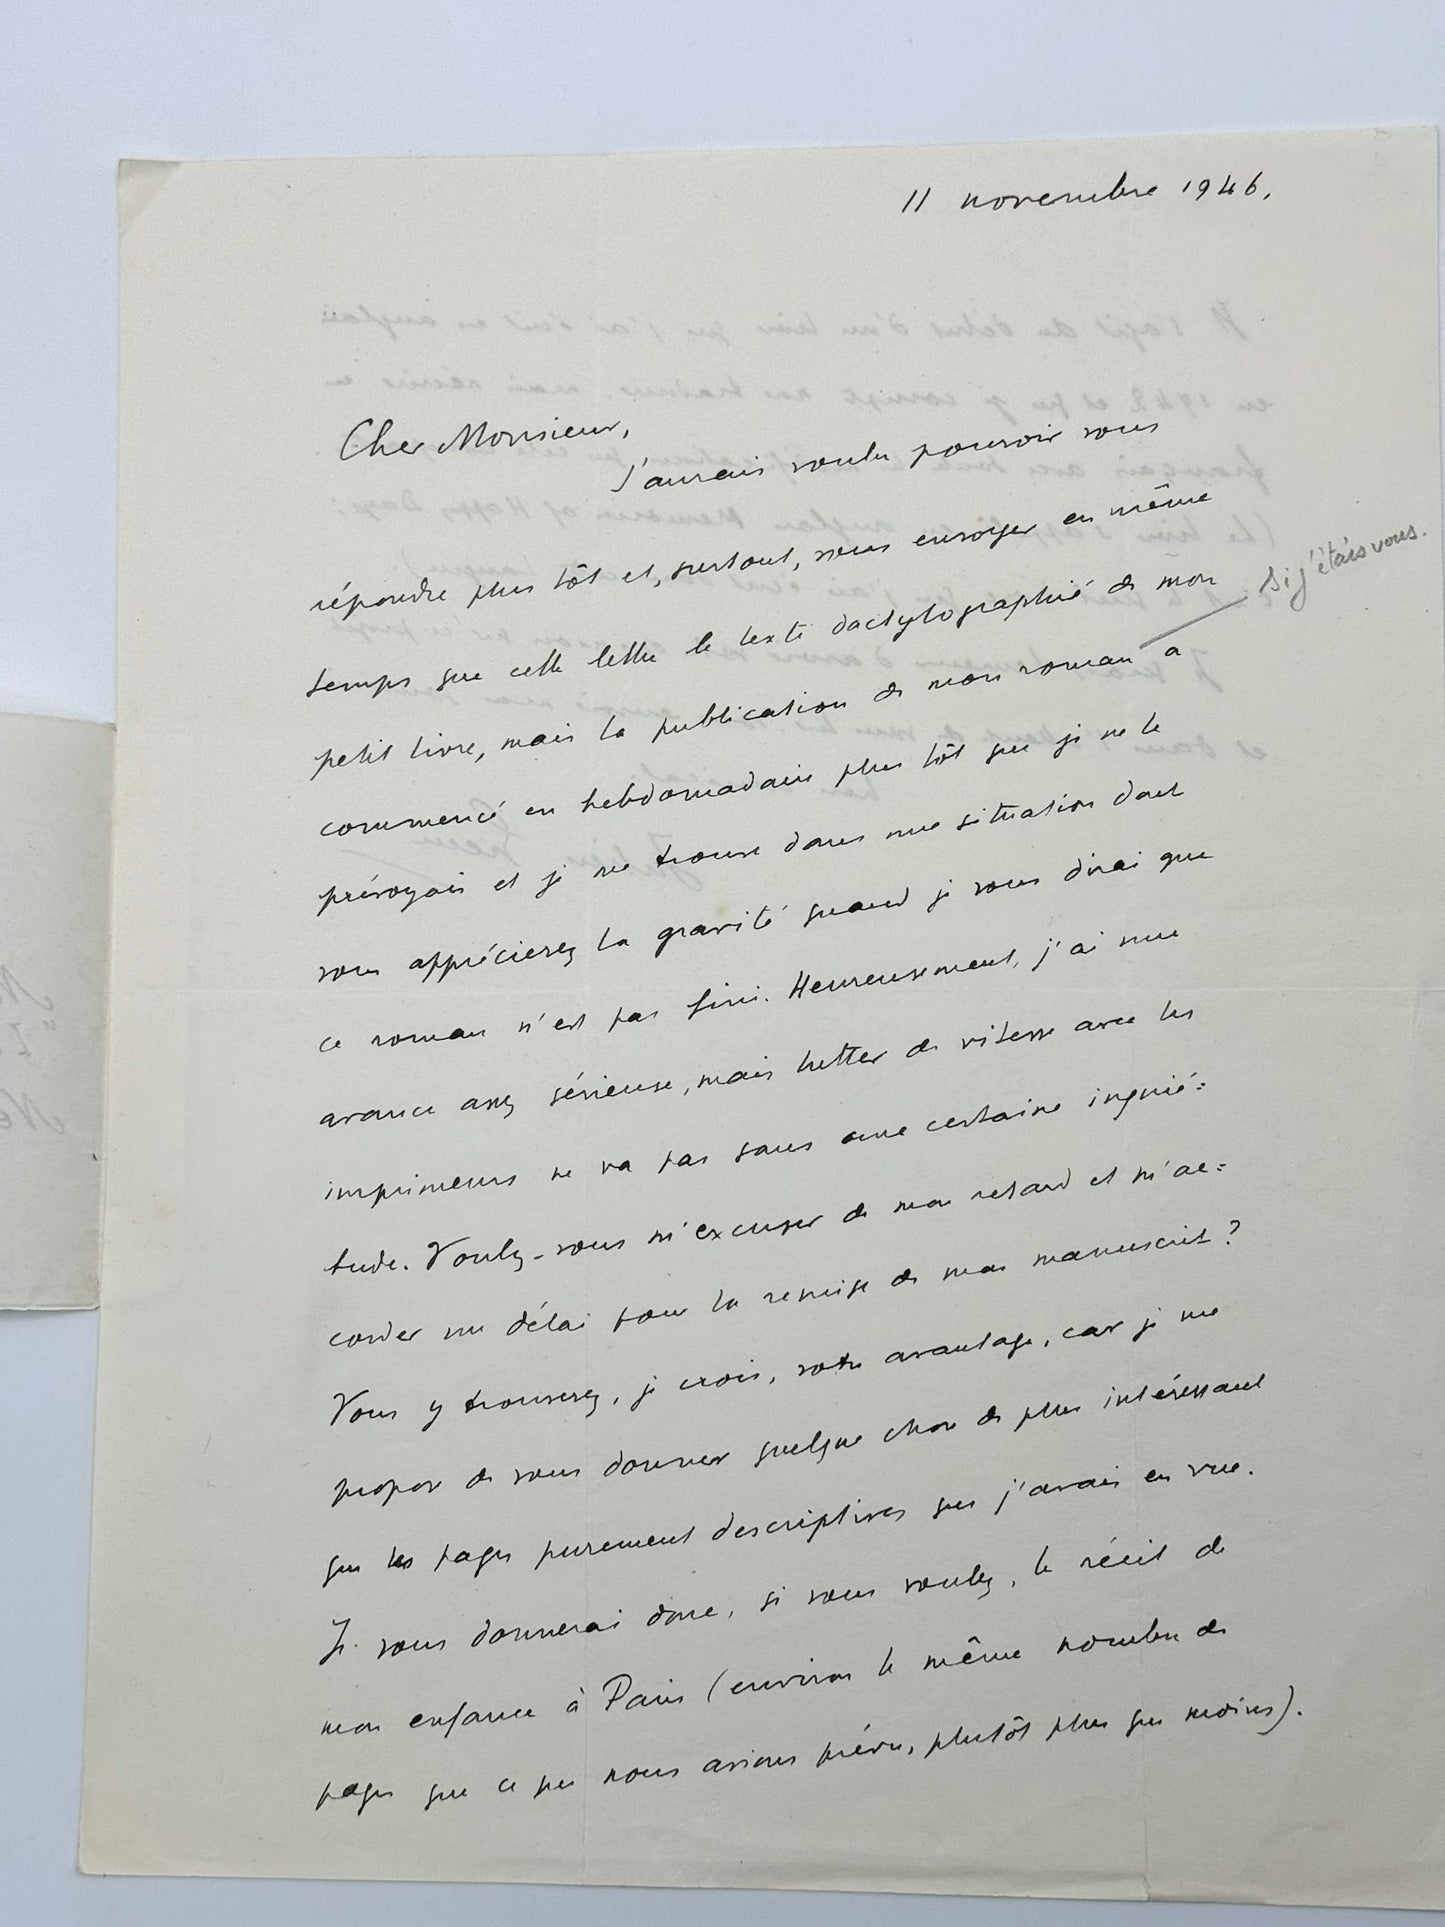 11 novembre 1946.
Cher Monsieur,
J'aurais voulu pouvoir vous
répondre plus tôt et, surtout, vous envoyer en même
temps que cette lettre le texte dactylographié de mon
si j'étais vous.
petit livre, mais la publication de mon roman a
commencé en hebdomadaire plus tôt que je ne le
prévoyais et je me trouve dans une situation dont
vous apprécierez la gravité quand je vous dirai que
ce roman n'est pas fini. Heureusement, j'ai une
avance assez sérieuse, mais lutter de vitesse avec les
imprimeurs ne va pas sans une certaine inquié=
tude. Voulez-vous m'excuser de mon retard et m'ac=
corder un délai pour la remise de mon manuscrit ?
Vous y trouverez, je crois, votre avantage, car je me
propose de vous donner quelque chose de plus intéressant
que les pages purement descriptives que j'avais en vue.
Je vous donnerai donc, si vous voulez, le récit de
mon enfance à Paris (environ le même nombre de
pages que ce que nous avions prévu, plutôt plus que moins).